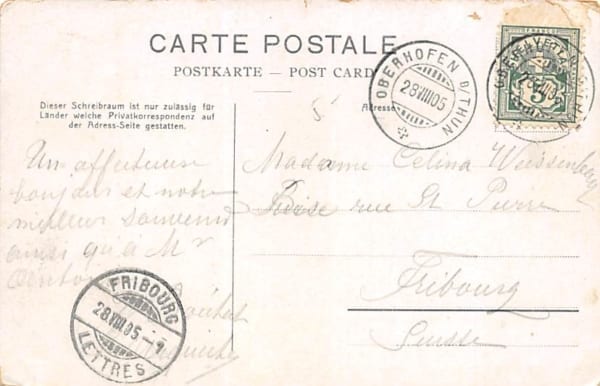 CARTE POSTALE
POSTKARTE – POST CARD
Dieser Schreibraum ist nur zulässig für
Länder welche Privatkorrespondenz auf
der Adress-Seite gestatten.
Adresse
OBERHOFEN B/THUN
28VIII05
FRANCO
5
Un affectueux
bonjour et notre
meilleur souvenir
ainsi qu'à Mr
Madame Celina Weissenbach
rue St Pierre
Fribourg
Suisse
FRIBOURG
28.VIII.05.–7
LETTRES